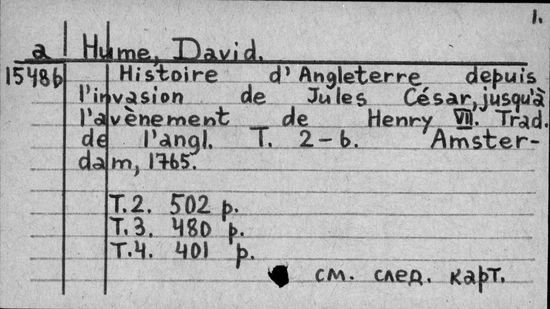 1.
a Hume, David.
15486 Histoire d'Angleterre depuis
l'invasion de Jules César, jusqu'à
l'avènement de Henry VII. Trad.
de l'angl. T. 2-6. Amster-
dam, 1765.
T.2. 502 p.
T.3. 480 p.
T.4. 401 p.
см. след. карт.